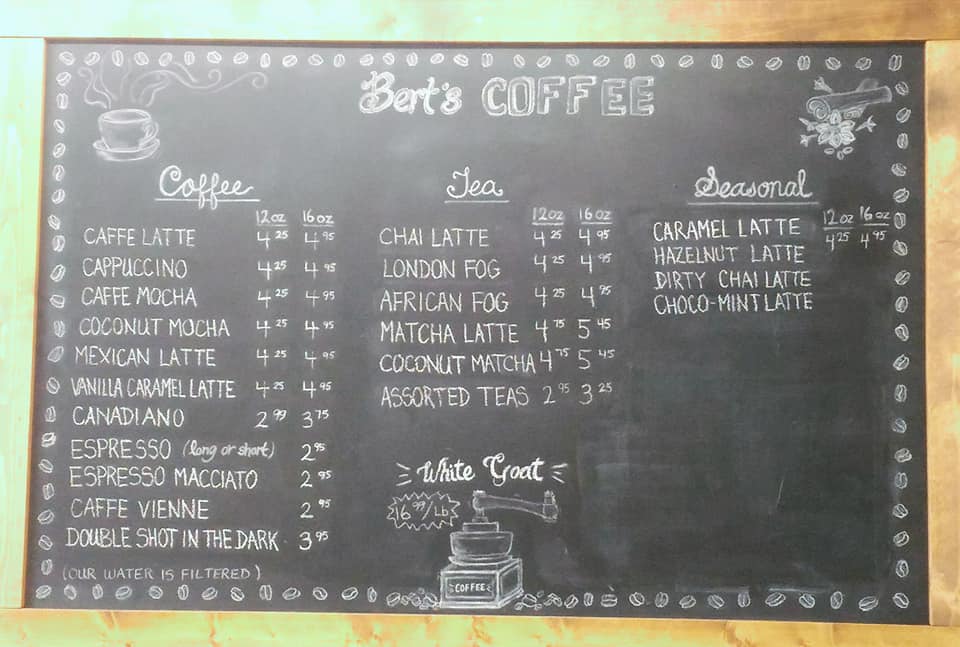 Bert's COFFEE
Coffee
12 oz 16 oz
CAFFE LATTE 4 25 4 95
CAPPUCCINO 4 25 4 95
CAFFE MOCHA 4 25 4 95
COCONUT MOCHA 4 25 4 95
MEXICAN LATTE 4 25 4 95
VANILLA CARAMEL LATTE 4 25 4 95
CANADIANO 2 99 3 75
ESPRESSO (long or short) 2 95
ESPRESSO MACCIATO 2 95
CAFFE VIENNE 2 95
DOUBLE SHOT IN THE DARK 3 95
(OUR WATER IS FILTERED)
Tea
12 oz 16 oz
CHAI LATTE 4 25 4 95
LONDON FOG 4 25 4 95
AFRICAN FOG 4 25 4 95
MATCHA LATTE 4 75 5 45
COCONUT MATCHA 4 75 5 45
ASSORTED TEAS 2 95 3 25
White Goat
16 99/Lb
COFFEE
Seasonal
12 oz 16 oz
CARAMEL LATTE 4 25 4 95
HAZELNUT LATTE
DIRTY CHAI LATTE
CHOCO-MINT LATTE